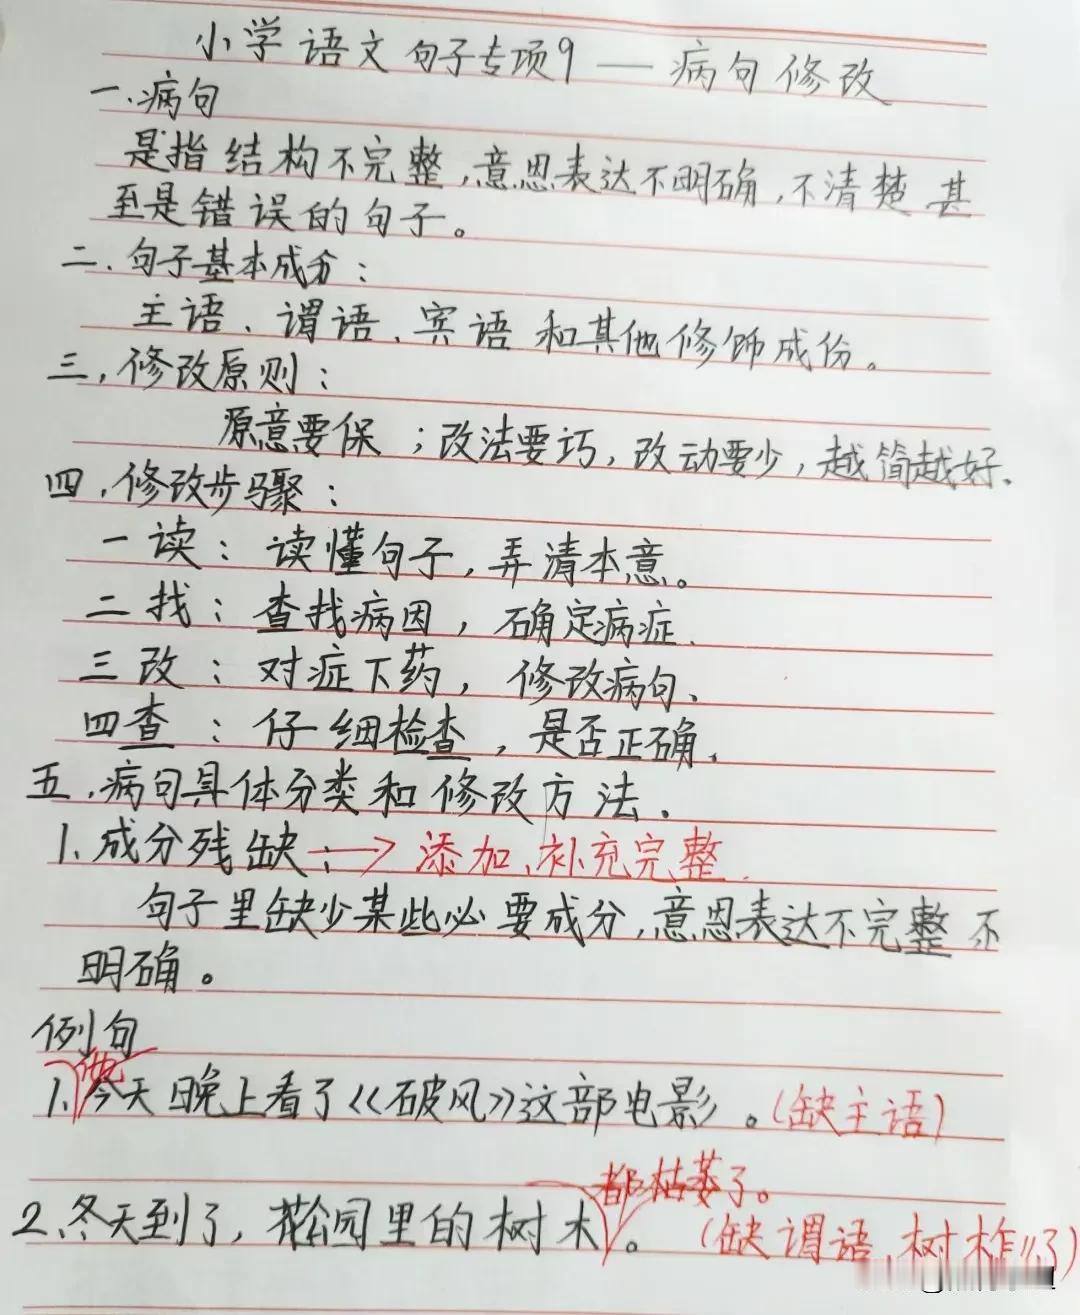 小学语文句子专项9 — 病句修改
一.病句
是指结构不完整,意思表达不明确,不清楚甚
至是错误的句子。
二.句子基本成分:
主语、谓语、宾语和其他修饰成份。
三,修改原则:
原意要保;改法要巧,改动要少,越简越好、
四,修改步骤:
一读:读懂句子,弄清本意。
二找:查找病因,确定病症.
三改:对症下药,修改病句、
四查:仔细检查,是否正确、
五.病句具体分类和修改方法.
1.成分残缺:→添加、补充完整.
句子里缺少某些必要成分,意思表达不完整不
明确。
例句
他
1、今天晚上看了《破风》这部电影。(缺主语)
都枯萎了。
2、冬天到了,公园里的树木。(缺谓语,树木